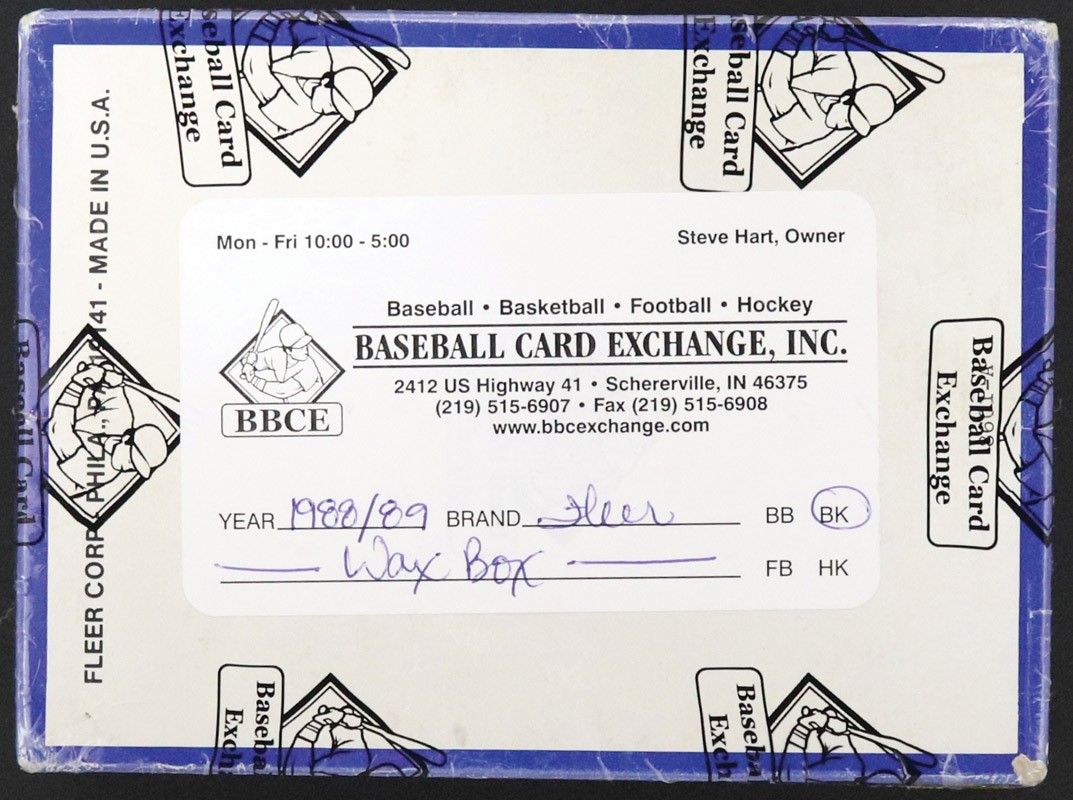 seball Card
xchange
seball Card
Exchange
FLEER CORP., PHILA., PA 19141 - MADE IN U.S.A.
Mon - Fri 10:00 - 5:00
Steve Hart, Owner
Baseball • Basketball • Football • Hockey
BASEBALL CARD EXCHANGE, INC.
2412 US Highway 41 • Schererville, IN 46375
(219) 515-6907 • Fax (219) 515-6908
www.bbcexchange.com
BBCE
YEAR 1988/89 BRAND Fleer BB BK
Wax Box FB HK
Baseball Card
Baseball Card
Exchange
Baseba
Exch
Baseba
Exch